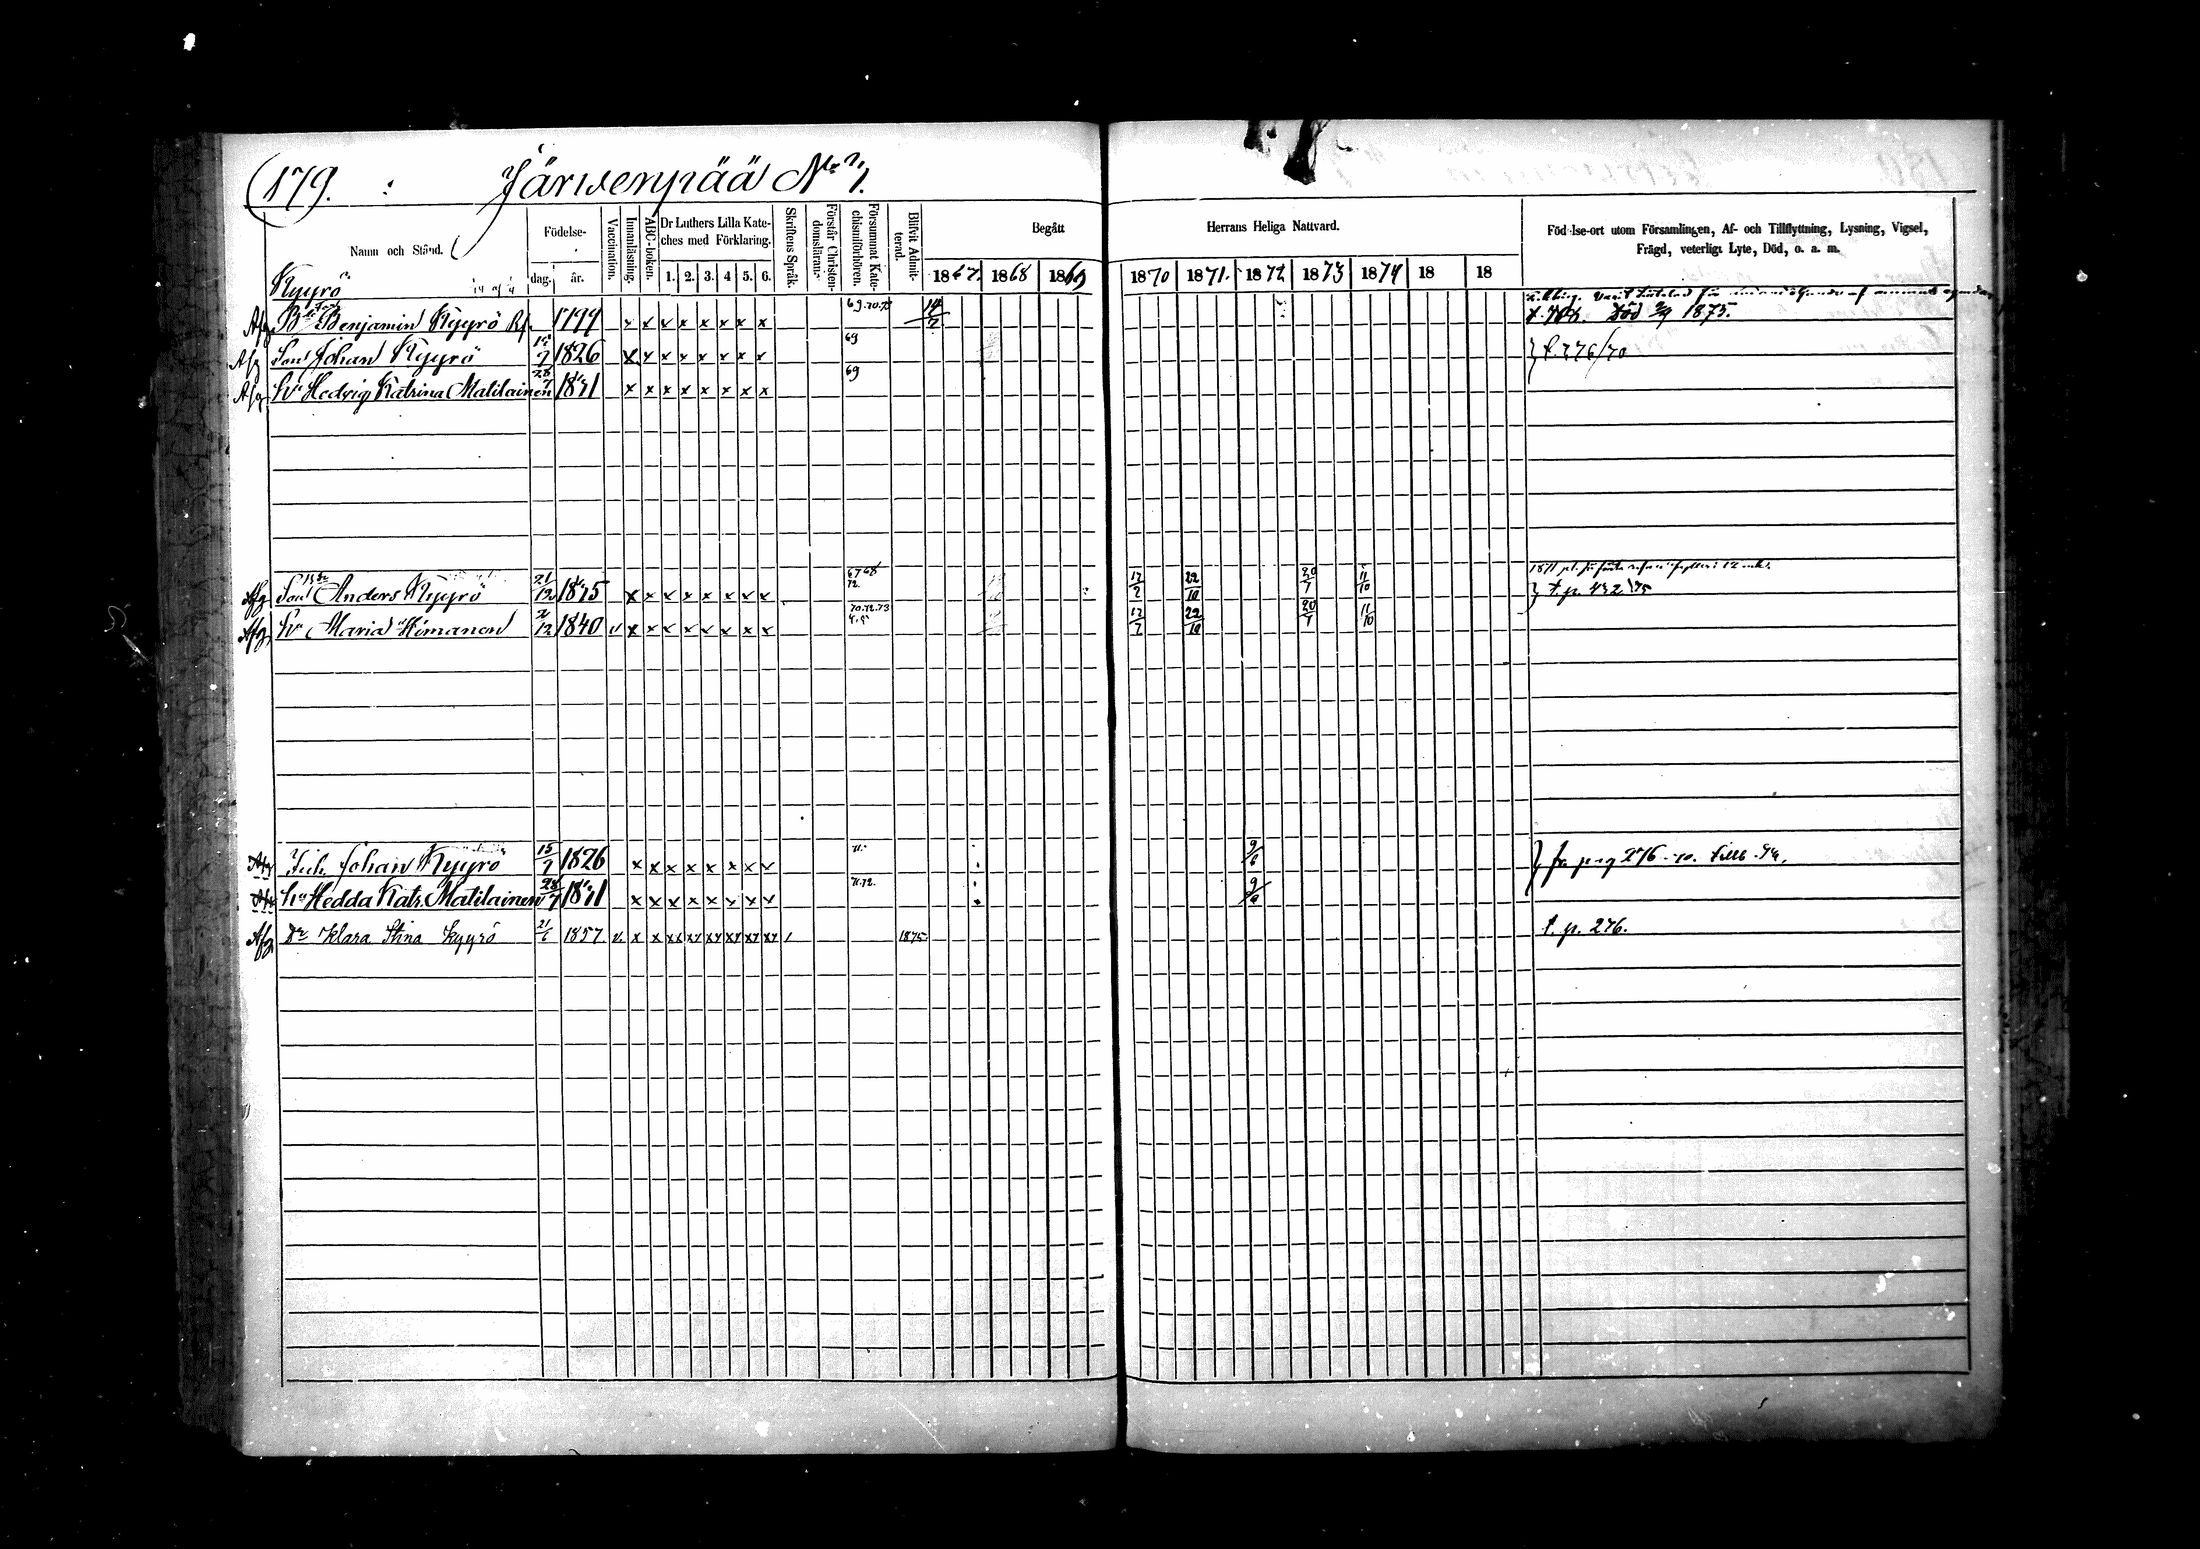 179. Järwenpää No 7.
Namn och Stånd.
Födelse-
dag. år.
Vaccination.
Innanläsning.
ABC-boken.
Dr Luthers Lilla Kate-
ches med Förklaring.
1. 2. 3. 4 5. 6.
Skriftens Språk.
Förstår Christen-
domsläran:
Försummat Kate-
chismiförhören.
Blifvit Admit-
terad.
Begått Herrans Heliga Nattvard.
1867. 1868 1869 1870 1871. 1872 1873 1874 18 18
Födelse-ort utom Församlingen, Af- och Tillflyttning, Lysning, Vigsel,
Frägd, veterligt Lyte, Död, o. a. m.
Kyyrö
Afg Benjamin Kyyrö 1799 x x x x x x x x 69.70.72 14/7 Död 1875.
Afg Son Johan Kyyrö 15/7 1826 x x x x x x x x 69 } f. 276/70
Afg Hu Hedvig Katrina Matilainen 28/7 1831 x x x x x x x x 69
Afg Son Anders Kyyrö 21/12 1835 x x x x x x x x 67 68 72. 17/2 22/10 20/7 11/10 } t. p. 432
Afg Hu Maria Himanen 2/12 1840 v x x x x x x x x 70.72.73 17/2 22/10 20/7 11/10
Afg Johan Kyyrö 15/7 1826 x x x x x x x x 9/6 } fr pag 276
Hu Hedda Katr. Matilainen 28/7 1831 x x x x x x x x 71.72. 9/6
Afg Dr Klara Stina Kyyrö 21/6 1857 v. x x xx xx xx xx xx xx / 1875. t. p. 276.